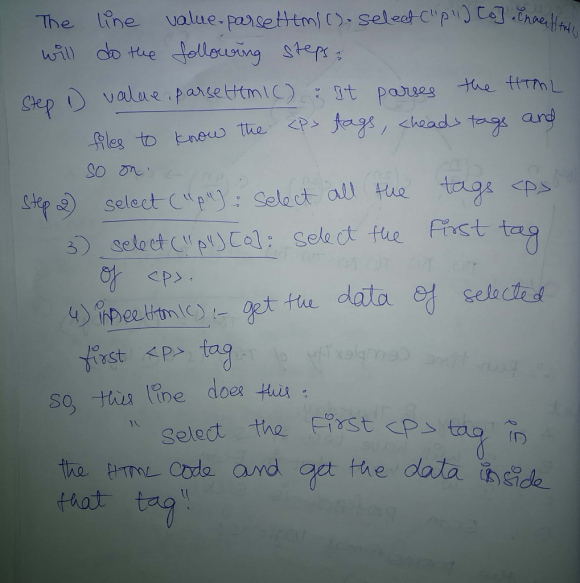 The line value.parseHtml().select("p")[0].innerHtml()
will do the following steps:
Step 1) value.parseHtml() : It parses the HTML
files to know the <p> tags, <head> tags and
so on.
Step 2) select("p") : select all the tags <p>
3) select("p")[0] : select the First tag
of <p>.
4) innerHtml() :- get the data of selected
first <p> tag
So, this line does this :
" Select the First <p> tag in
the HTML Code and get the data inside
that tag"